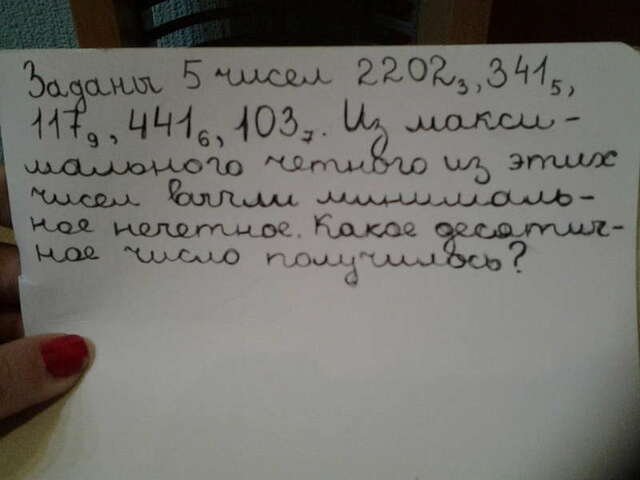 Заданы 5 чисел 2202₃, 341₅,
117₉, 441₆, 103₇. Из макси-
мального четного из этих
чисел вычли минималь-
ное нечетное. Какое десятич-
ное число получилось?